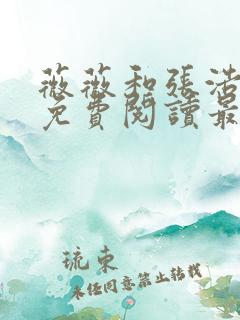 薇薇和張浩
免費閱讀最
琉束
未經同意禁止轉載